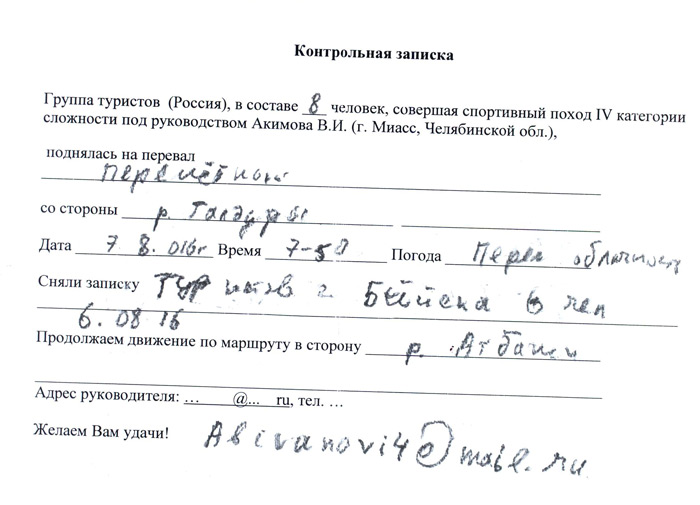 Контрольная записка
Группа туристов (Россия), в составе 8 человек, совершая спортивный поход IV категории
сложности под руководством Акимова В.И. (г. Миасс, Челябинской обл.),
поднялась на перевал
Перемётный
со стороны р. Талдура
Дата 7 8. 016г Время 7-50 Погода Перем облачность
Сняли записку Туристов г. Бийска 6 чел
6. 08 16
Продолжаем движение по маршруту в сторону р. Атбаши
Адрес руководителя: … @... ru, тел. …
Желаем Вам удачи! Abivanovi4@mail.ru